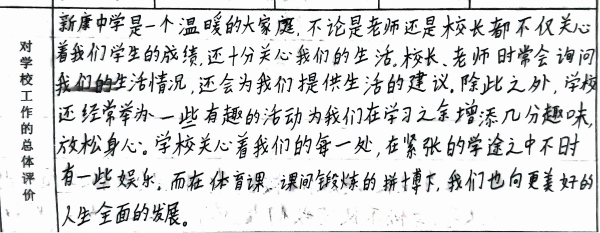 对学校工作的总体评价
新康中学是一个温暖的大家庭,不论是老师还是校长都不仅关心
着我们学生的成绩,还十分关心我们的生活。校长、老师时常会询问
我们的生活情况,还会为我们提供生活的建议。除此之外,学校
还经常举办一些有趣的活动为我们在学习之余增添几分趣味,
放松身心。学校关心着我们的每一处,在紧张的学途之中不时
有一些娱乐。而在体育课、课间锻炼的拼搏下,我们也向更美好的
人生全面的发展。